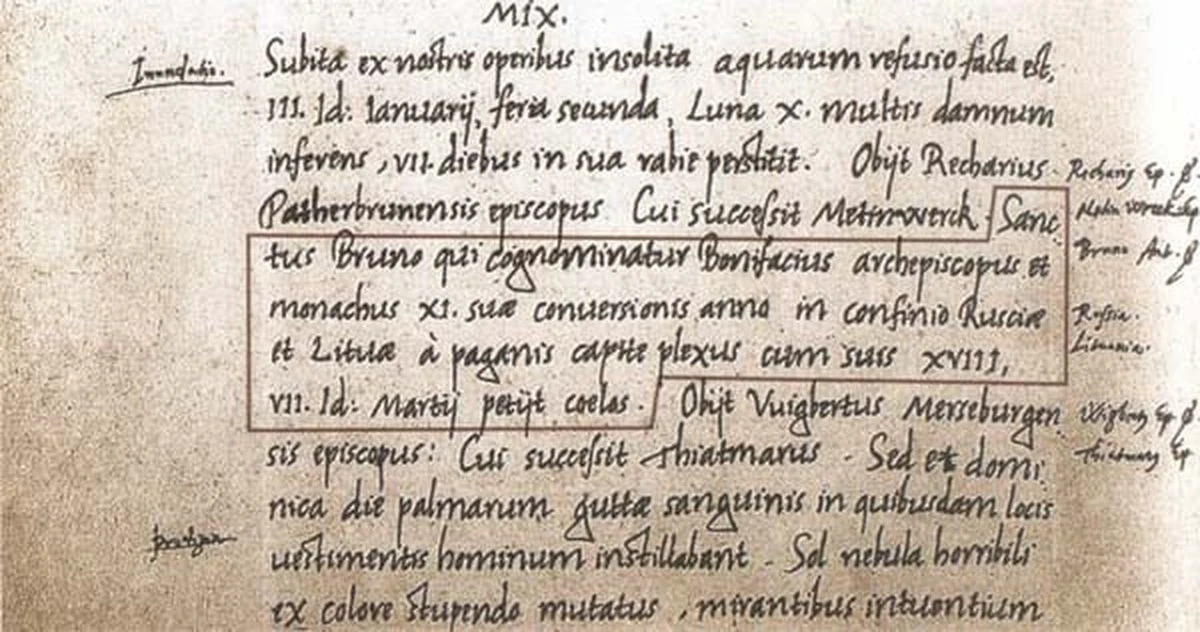 MIX.
Inundatio.
Subita ex nostris operibus insolita aquarum refusio facta est,
III. Id: Ianuarij, feria secunda, Luna X. multis damnum
inferens, VII. diebus in sua rabie perstitit. Obijt Recharius
Patherbrunensis episcopus Cui successit Meinwerck. Sanc
tus Bruno qui cognominatur Bonifacius archepiscopus et
monachus XI. suæ conuersionis anno in confinio Rusciæ
et Lituæ à paganis capite plexus cum suis XVIII,
VII. Id: Martij petijt coelos. Obijt Vuigbertus Merseburgen
sis episcopus: Cui successit Thiatmarus. Sed et domi
nica die palmarum guttæ sanguinis in quibusdam locis
uestimentis hominum instillabant. Sol nebula horribili
ex colore stupendo mutatus, mirantibus intuentium
Ep.
Ep
Bruno
Russia.
Lituania.
Ep.
Ep